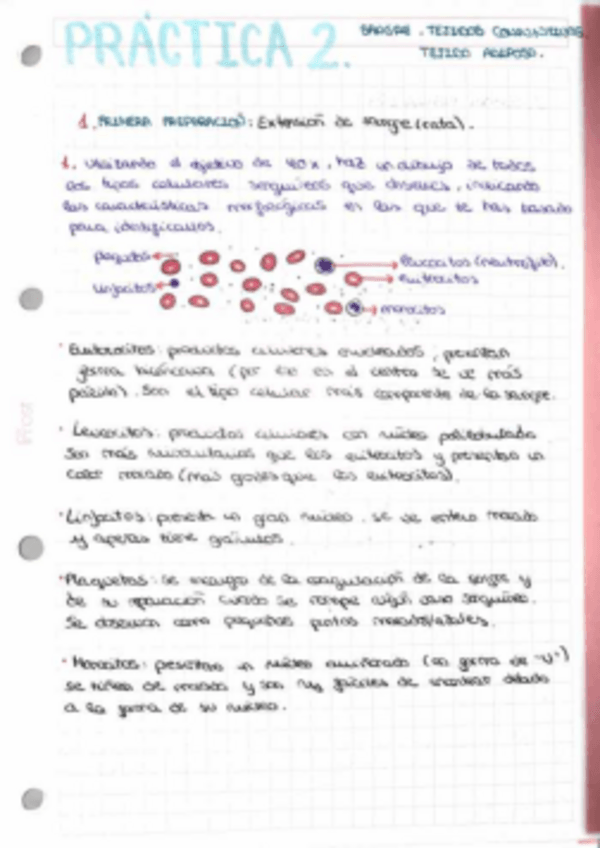 PRÁCTICA 2.
SANGRE. TEJIDOS CONJUNTIVOS.
TEJIDO ADIPOSO.
1. PRIMERA PREPARACIÓN: Extensión de sangre (rata).
1. Utilizando el objetivo de 40x, haz un dibujo de todos
los tipos celulares sanguíneos que observes, indicando
las características morfológicas en las que te has basado
para identificarlos.
plaquetas
leucocitos (neutrófilo).
linfocitos
eritrocitos
monocitos
· Eritrocitos: productos celulares anucleados, presentan
forma bicóncava (por eso en el centro se ve más
pálido). Son el tipo celular más de la sangre.
· Leucocitos: productos celulares con núcleo polilobulado
Son más que los eritrocitos y presentan un
color morado (más que los eritrocitos).
· Linfocitos: presenta un gran núcleo, se ve entero morado
y apenas tiene gránulos.
· Plaquetas: se encargan de la coagulación de la sangre y
de su reparación cuando se rompe algún vaso sanguíneo.
Se observan como pequeños puntos morados/azules.
· Monocitos: presentan un núcleo (en forma de "U")
se tiñen de morado y son muy fáciles de encontrar debido
a la forma de su núcleo.